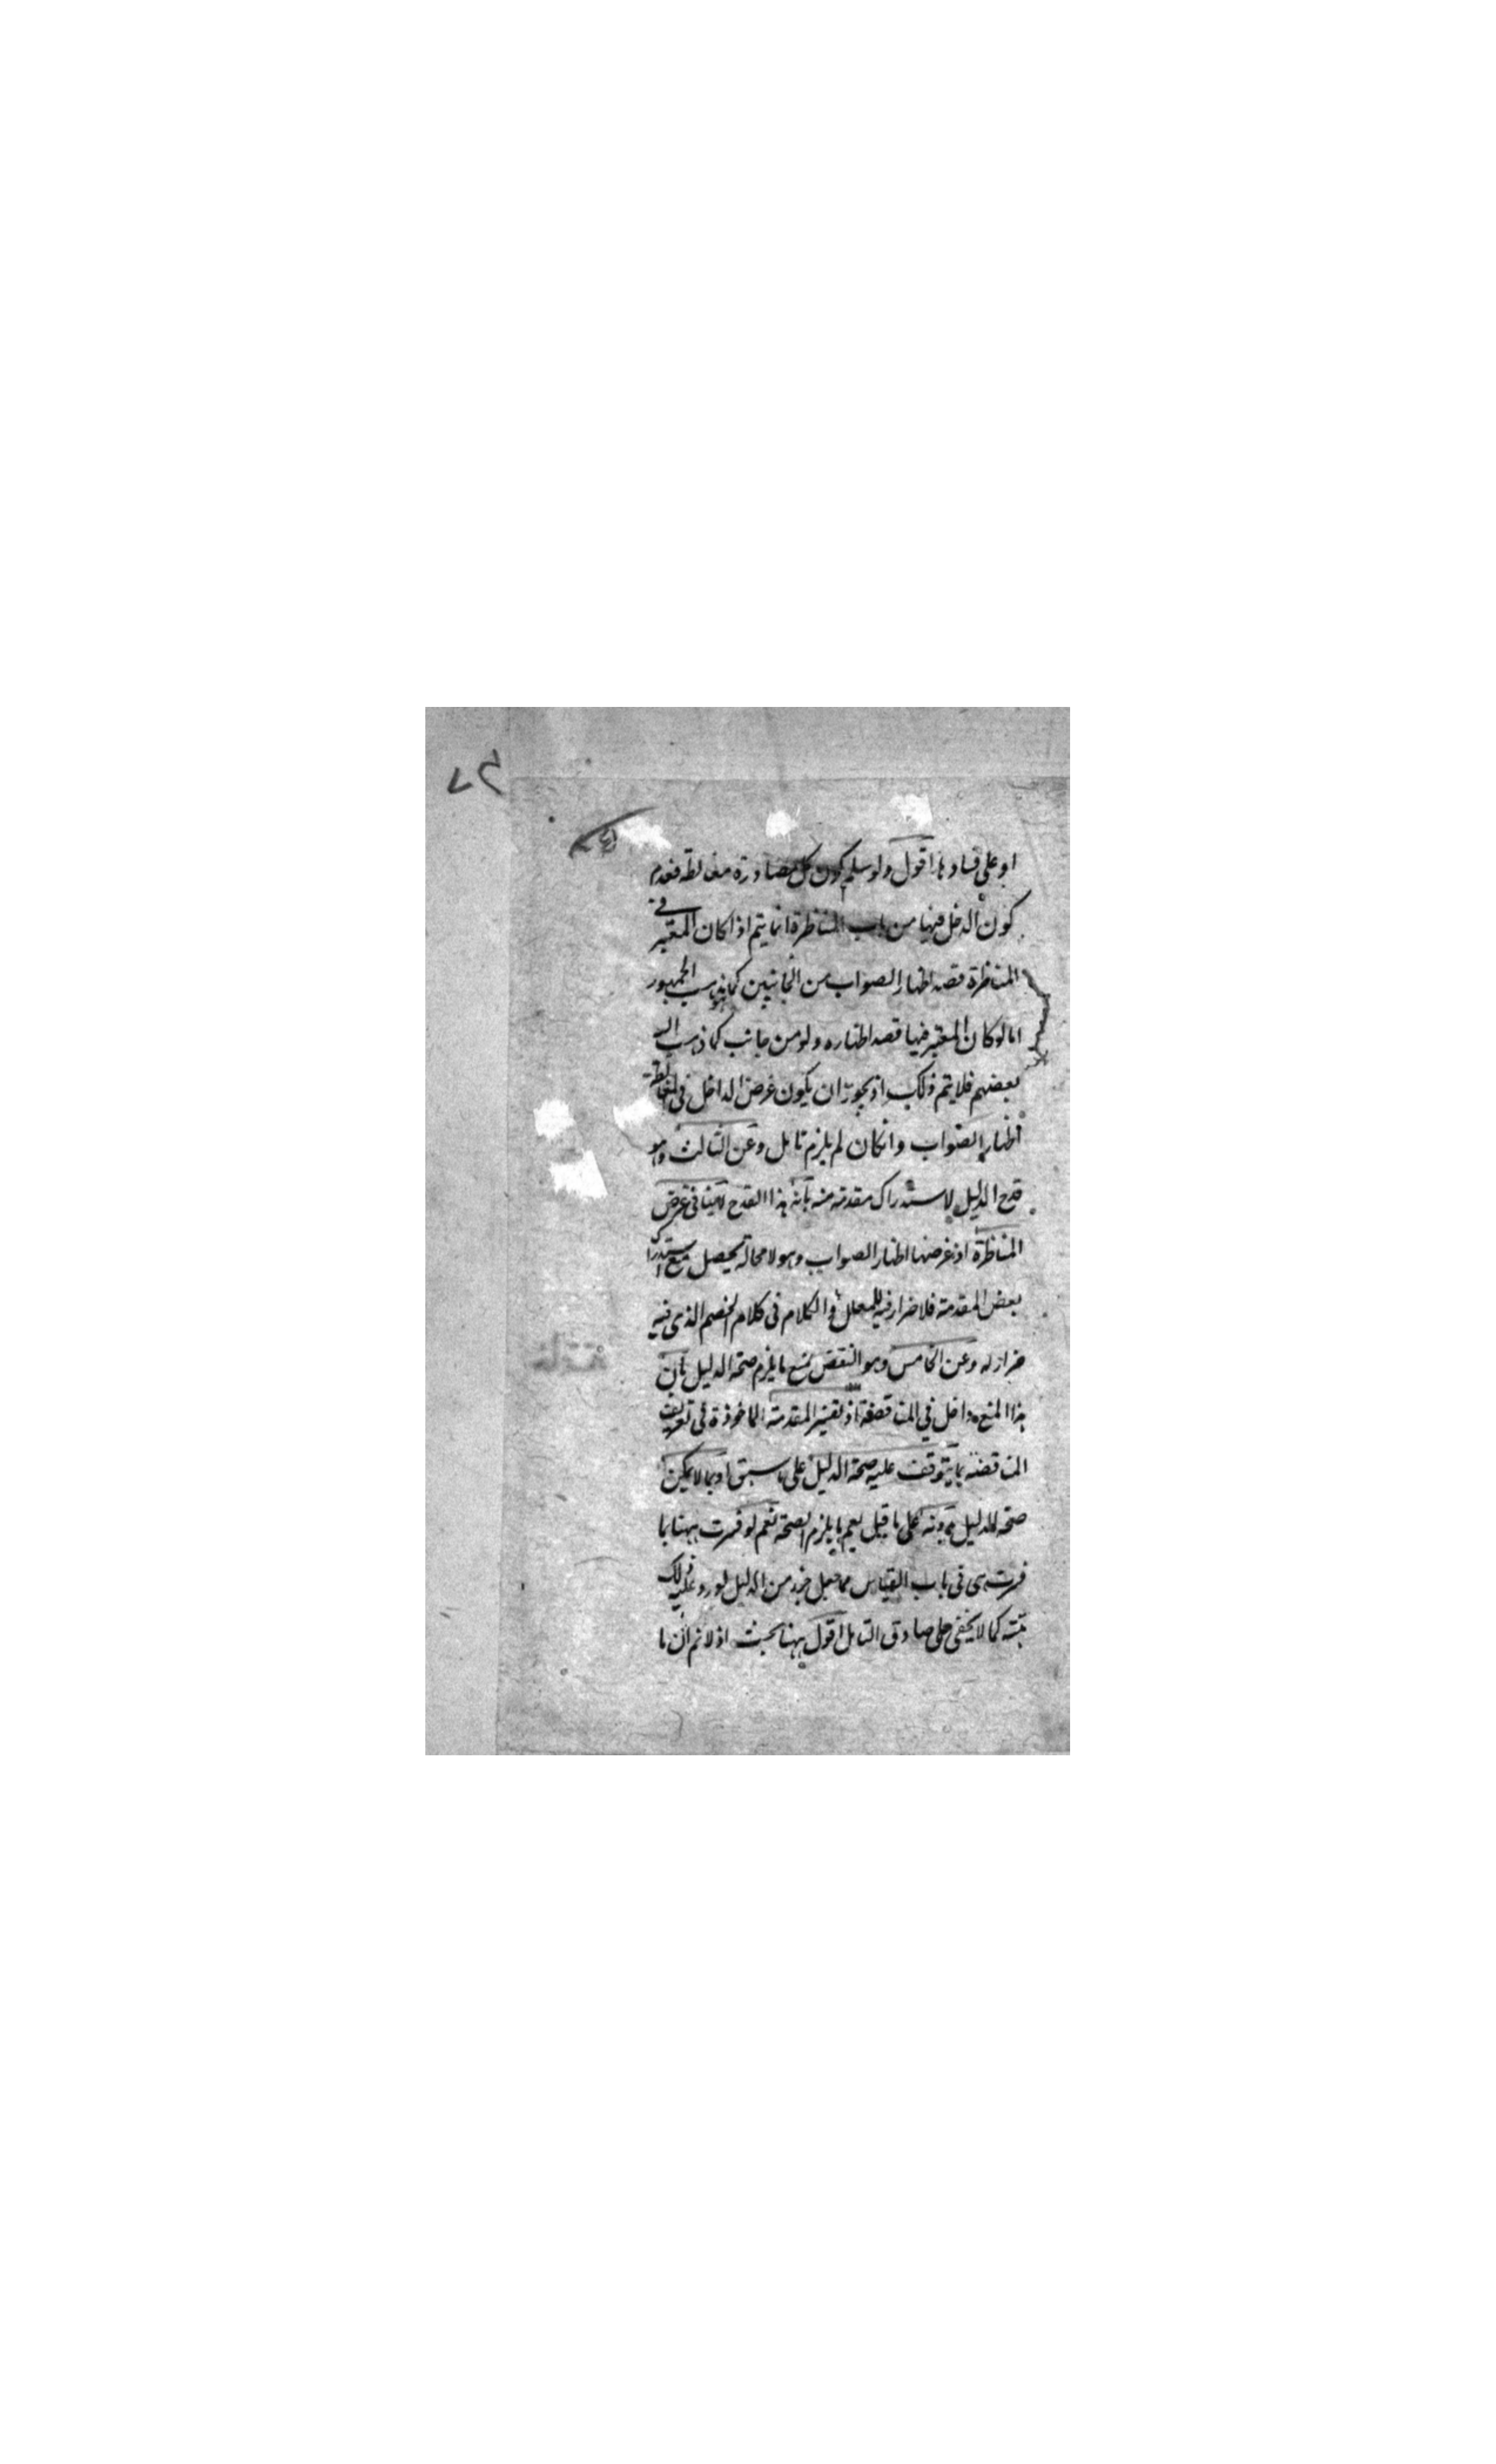 او على فسادها اقول ولو سلم كون كل مصادرة مغالطة فعدم
كون الدخل فيها من باب المناظرة انما يتم اذا كان المعتبر في
المناظرة قصد اظهار الصواب من الجانبين كما يذهب الجمهور
اما لو كان المعتبر فيها قصد اظهاره ولو من جانب كما ذهب اليه
بعضهم فلا يتم ذلك اذ يجوز ان يكون غرض الداخل في المغالطة
اظهار الصواب وانكان لم يلزم تامل وعن الثالث وهو
قدح الدليل لاستدراك مقدمة منه بانه هذا القدح لاينافي غرض
المناظرة اذ غرضها اظهار الصواب وهو لا محالة يحصل مع استدراك
بعض المقدمة فلا ضرار فيه للمعلل والكلام في كلام الخصم الذي فيه
ضرار له وعن الخامس وهو النقض بمنع ما يلزم صحة الدليل بان
هذا المنع داخل في المناقضة اذ تفسير المقدمة الماخوذة في تعريف
المناقضة بما يتوقف عليه صحة الدليل على ما سبق او بما لا يمكن
صحة الدليل بدونه على ما قيل يعم ما يلزم الصحة نعم لو فسرت ههنا بما
فسرت هي في باب القياس مما جعل جزء من الدليل لورد عليه ذلك
بتة كما لا يخفى على صادق التامل اقول ههنا بحث اذ لا نم ان ما